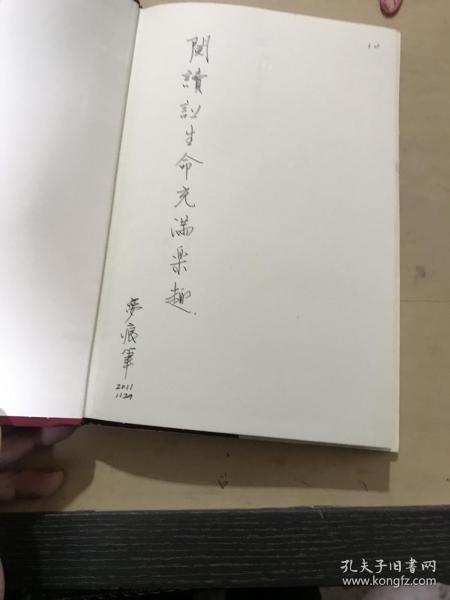 閱讀让生命充滿樂趣.
夢痕筆
2011
1129
孔夫子旧书网
www.kongfz.com